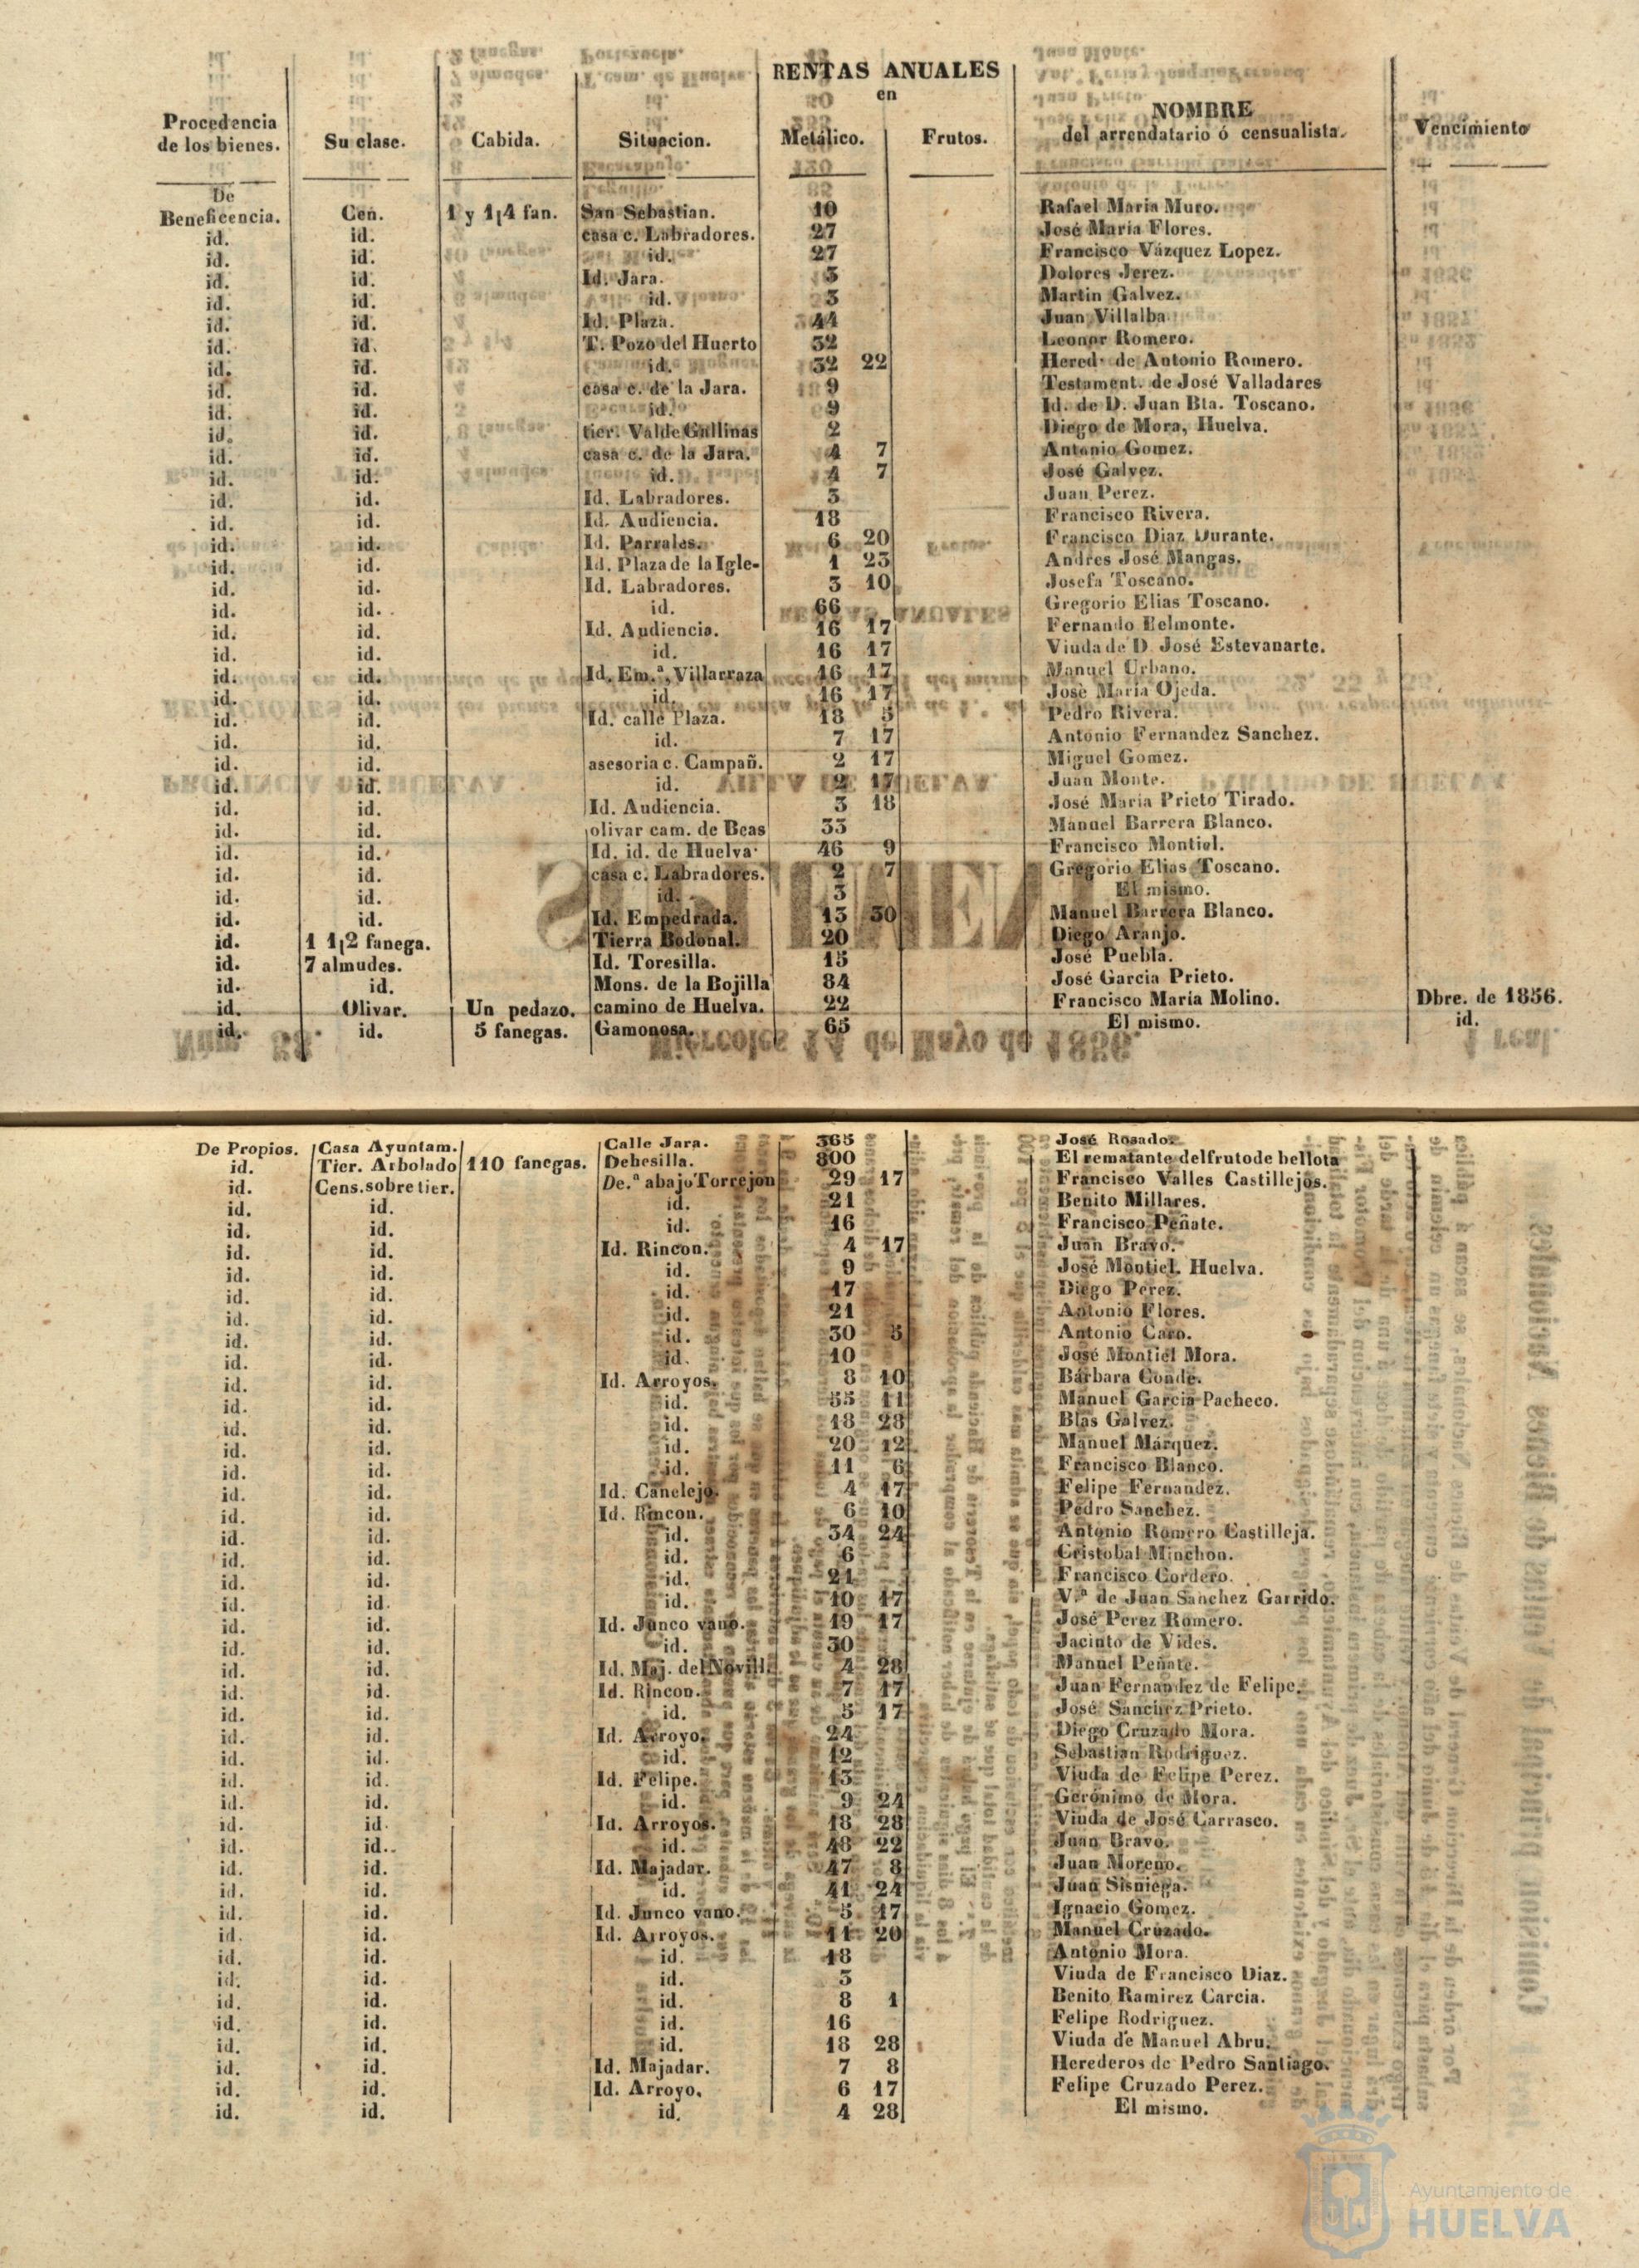 RENTAS ANUALES
en
Procedencia de los bienes. Su clase. Cabida. Situacion. Metálico. Frutos. NOMBRE del arrendatario ó censualista. Vencimiento
De
Beneficencia. Cen. 1 y 1,4 fan. San Sebastian. 10 Rafael Maria Muro.
id. id. casa c. Labradores. 27 José Maria Flores.
id. id. id. 27 Francisco Vázquez Lopez.
id. id. Id. Jara. 3 Dolores Jerez.
id. id. id. 3 Martin Galvez.
id. id. Id. Plaza. 44 Juan Villalba
id. id. T. Pozo del Huerto 32 Leonor Romero.
id. id. id. 32 22 Hered. de Antonio Romero.
id. id. casa c. de la Jara. 9 Testament. de José Valladares
id. id. id. 9 Id. de D. Juan Bta. Toscano.
id. id. tier. Valde Gallinas 2 Diego de Mora, Huelva.
id. id. casa c. de la Jara. 4 7 Antonio Gomez.
id. id. id. 4 7 José Galvez.
id. id. Id. Labradores. 3 Juan Perez.
id. id. Id. Audiencia. 18 Francisco Rivera.
id. id. Id. Parrales. 6 20 Francisco Diaz Durante.
id. id. Id. Plaza de la Igle- 1 23 Andres José Mangas.
id. id. Id. Labradores. 3 10 Josefa Toscano.
id. id. id. 66 Gregorio Elias Toscano.
id. id. Id. Audiencia. 16 17 Fernando Belmonte.
id. id. id. 16 17 Viuda de D. José Estevanarte.
id. id. Id. Em.ª, Villarraza 16 17 Manuel Urbano.
id. id. id. 16 17 José Maria Ojeda.
id. id. Id. calle Plaza. 18 5 Pedro Rivera.
id. id. id. 7 17 Antonio Fernandez Sanchez.
id. id. asesoria c. Campañ. 2 17 Miguel Gomez.
id. id. id. 2 17 Juan Monte.
id. id. Id. Audiencia. 3 18 José Maria Prieto Tirado.
id. id. olivar cam. de Beas 33 Manuel Barrera Blanco.
id. id. Id. id. de Huelva 46 9 Francisco Montiel.
id. id. casa c. Labradores. 2 7 Gregorio Elias Toscano.
id. id. id. 3 El mismo.
id. id. Id. Empedrada. 13 30 Manuel Barrera Blanco.
id. 1 1,2 fanega. Tierra Bodonal. 20 Diego Aranjo.
id. 7 almudes. Id. Toresilla. 15 José Puebla.
id. id. Mons. de la Bojilla 84 José Garcia Prieto.
id. Olivar. Un pedazo. camino de Huelva. 22 Francisco María Molino. Dbre. de 1856.
id. id. 5 fanegas. Gamonosa. 65 El mismo. id.
De Propios. Casa Ayuntam. Calle Jara. 365 José Rosado.
id. Tier. Arbolado 110 fanegas. Dehesilla. 800 El rematante del fruto de bellota
id. Cens. sobre tier. De.ª abajo Torrejon 29 17 Francisco Valles Castillejos.
id. id. id. 21 Benito Millares.
id. id. id. 16 Francisco Peñate.
id. id. Id. Rincon. 4 17 Juan Bravo.
id. id. id. 9 José Montiel. Huelva.
id. id. id. 17 Diego Perez.
id. id. id. 21 Antonio Flores.
id. id. id. 30 5 Antonio Caro.
id. id. id. 10 José Montiel Mora.
id. id. Id. Arroyos. 8 10 Bárbara Conde.
id. id. id. 55 11 Manuel Garcia Pacheco.
id. id. id. 18 28 Blas Galvez.
id. id. id. 20 12 Manuel Márquez.
id. id. id. 11 6 Francisco Blanco.
id. id. Id. Canelejo. 4 17 Felipe Fernandez.
id. id. Id. Rincon. 6 10 Pedro Sanchez.
id. id. id. 34 24 Antonio Romero Castilleja.
id. id. id. 6 Cristobal Minchon.
id. id. id. 21 Francisco Cordero.
id. id. id. 10 17 V.ª de Juan Sanchez Garrido.
id. id. Id. Junco vano. 19 17 José Perez Romero.
id. id. id. 30 Jacinto de Vides.
id. id. Id. Maj. del Novill. 4 28 Manuel Peñate.
id. id. Id. Rincon. 7 17 Juan Fernandez de Felipe.
id. id. id. 5 17 José Sanchez Prieto.
id. id. Id. Arroyo. 24 Diego Cruzado Mora.
id. id. id. 12 Sebastian Rodriguez.
id. id. Id. Felipe. 13 Viuda de Felipe Perez.
id. id. id. 9 24 Gerónimo de Mora.
id. id. Id. Arroyos. 18 28 Viuda de José Carrasco.
id. id. id. 48 22 Juan Bravo.
id. id. Id. Majadar. 47 8 Juan Moreno.
id. id. id. 41 24 Juan Sisniega.
id. id. Id. Junco vano. 5 17 Ignacio Gomez.
id. id. Id. Arroyos. 11 20 Manuel Cruzado.
id. id. id. 18 Antonio Mora.
id. id. id. 3 Viuda de Francisco Diaz.
id. id. id. 8 1 Benito Ramirez Garcia.
id. id. id. 16 Felipe Rodriguez.
id. id. id. 18 28 Viuda de Manuel Abru.
id. id. Id. Majadar. 7 8 Herederos de Pedro Santiago.
id. id. Id. Arroyo. 6 17 Felipe Cruzado Perez.
id. id. id. 4 28 El mismo.
Ayuntamiento de
HUELVA